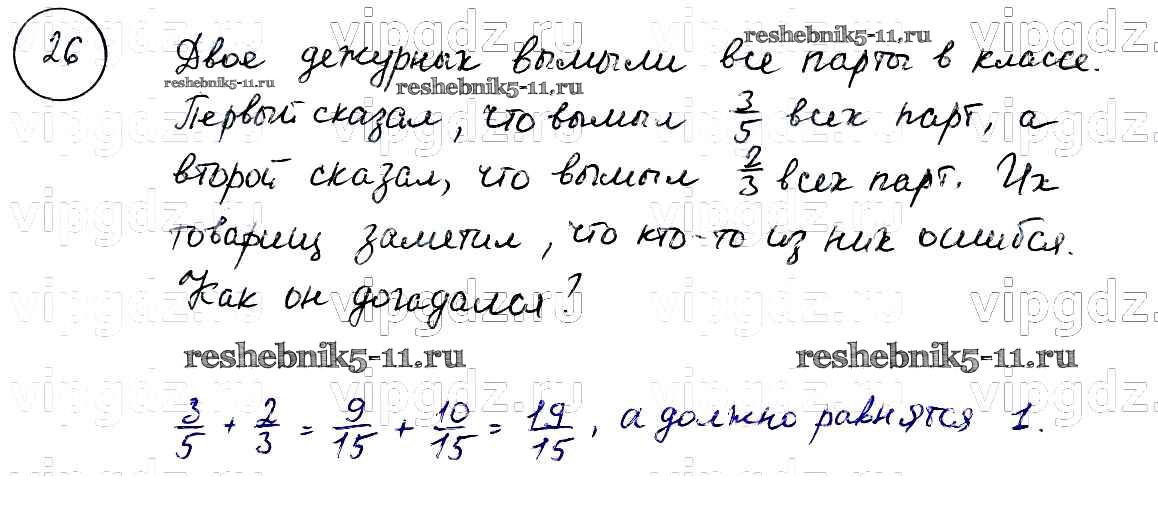 26
Двое дежурных вымыли все парты в классе.
Первый сказал, что вымыл 3/5 всех парт, а
второй сказал, что вымыл 2/3 всех парт. Их
товарищ заметил, что кто-то из них ошибся.
Как он догадался?
3/5 + 2/3 = 9/15 + 10/15 = 19/15, а должно равнятся 1.
reshebnik5-11.ru
reshebnik5-11.ru
reshebnik5-11.ru
reshebnik5-11.ru
reshebnik5-11.ru
vipgdz.ru